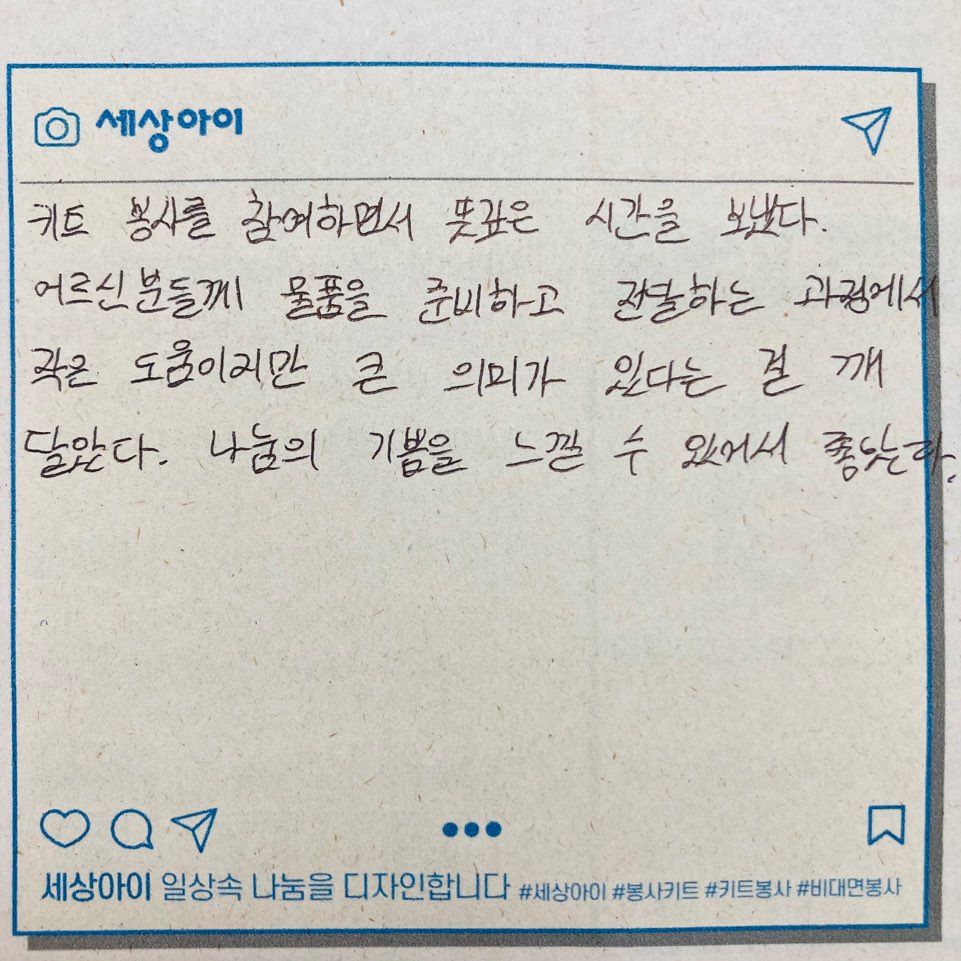 세상아이
키트 봉사를 참여하면서 뜻깊은 시간을 보냈다.
어르신분들께 물품을 준비하고 전달하는 과정에서
작은 도움이지만 큰 의미가 있다는 걸 깨
달았다. 나눔의 기쁨을 느낄 수 있어서 좋았다.
세상아이 일상속 나눔을 디자인합니다 #세상아이 #봉사키트 #키트봉사 #비대면봉사